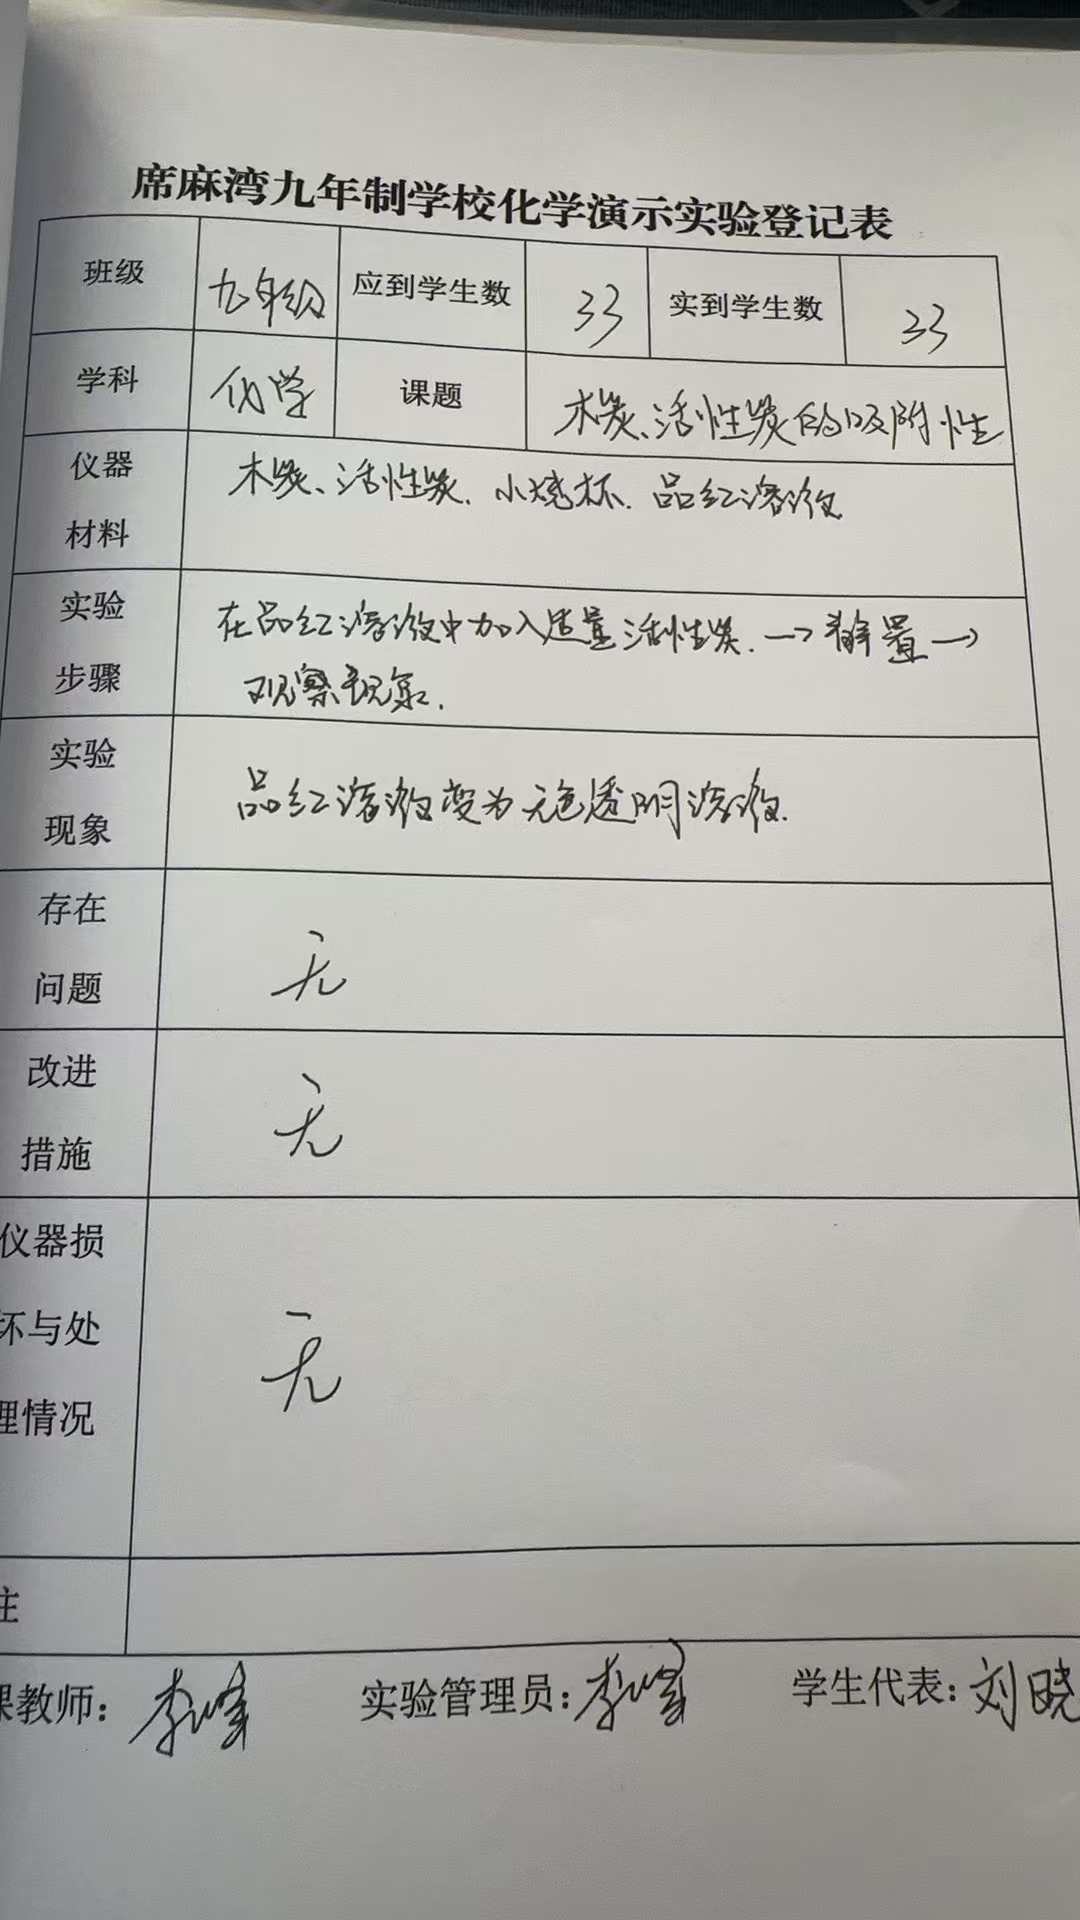 席麻湾九年制学校化学演示实验登记表
班级 九年级 应到学生数 33 实到学生数 33
学科 化学 课题 木炭、活性炭的吸附性
仪器
材料
木炭、活性炭、小烧杯、品红溶液
实验
步骤
在品红溶液中加入适量活性炭.→静置→
观察现象.
实验
现象
品红溶液变为无色透明溶液.
存在
问题
无
改进
措施
无
仪器损
坏与处
理情况
无
注
课教师: 李 实验管理员: 李 学生代表: 刘晓